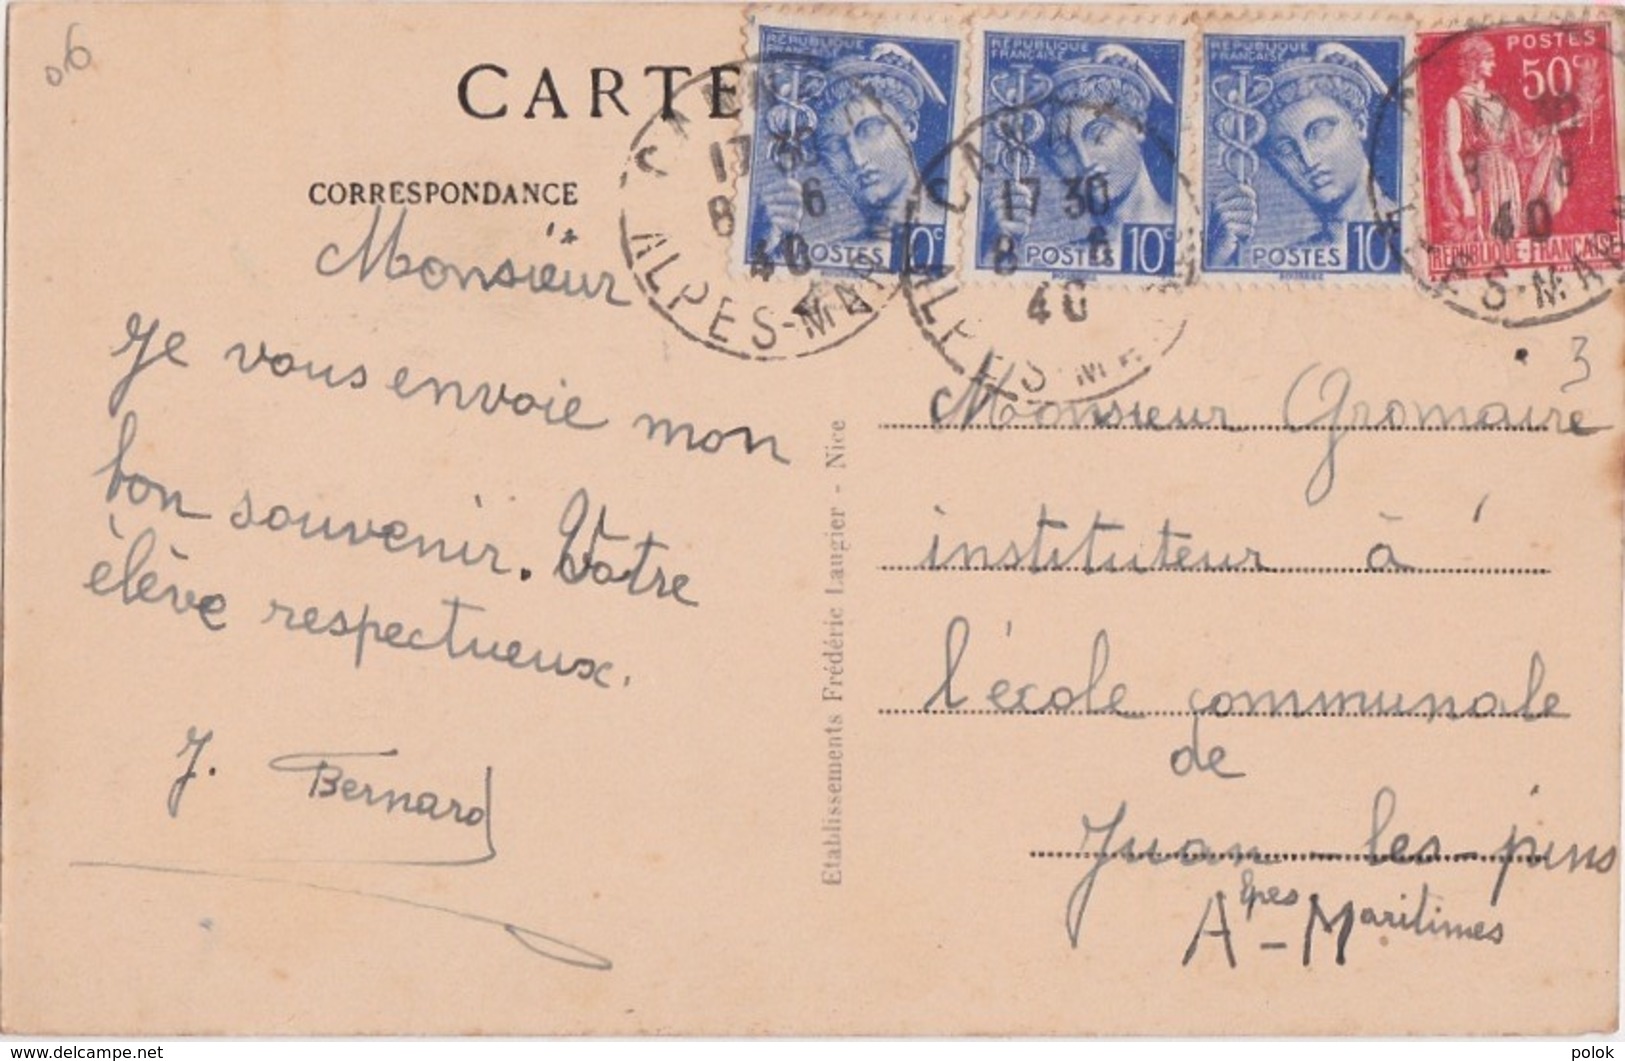 06
CARTE
CORRESPONDANCE
RÉPUBLIQUE FRANÇAISE
POSTES 10c
RÉPUBLIQUE FRANÇAISE
POSTES 10c
RÉPUBLIQUE FRANÇAISE
POSTES 10
POSTES
50c
RÉPUBLIQUE-FRANÇAISE
CANNES
17 30
8 6
40
ALPES-MAR
CANN
17 30
8 6
40
ALPES-MA
17 30
8 6
40
S-MA
3
Monsieur
Je vous envoie mon
bon souvenir. Votre
élève respectueux.
J. Bernard
Etablissements Frédéric Laugier - Nice
Monsieur Gromaire
instituteur à
l'école communale
de
Juan-les-pins
Alpes-Maritimes
www.delcampe.net
polok